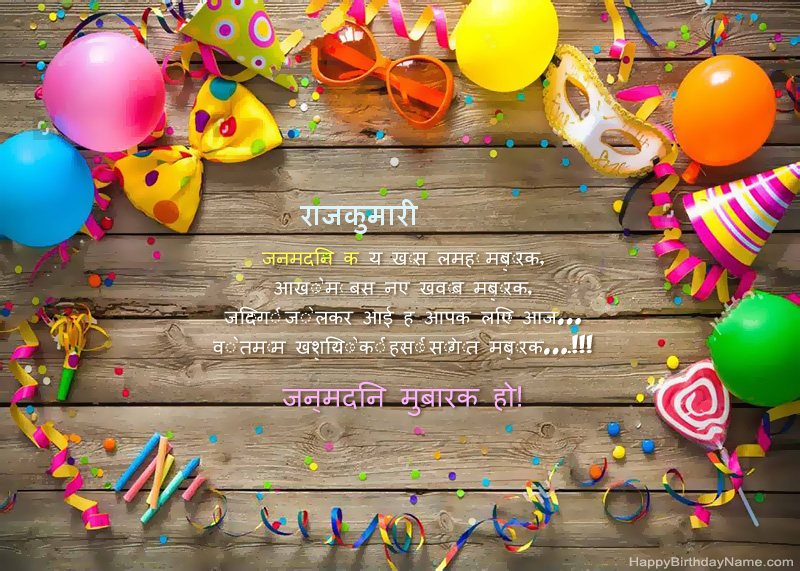 राजकुमारी
जनमदनि क य खास लमहा मबारक,
आखों में बस नए खवाब मबारक,
जदिंगी जो लेकर आई ह आपक लएि आज...
वो तमाम खशयिों की हसीं सौगात मबारक....!!!
जन्मदनि मुबारक हो!
HappyBirthdayName.com